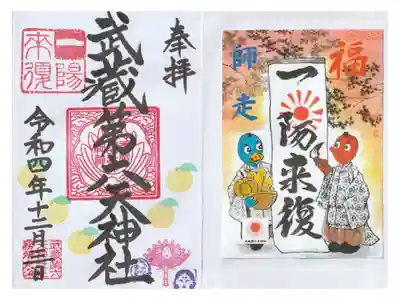 奉拝
一陽
来復
武蔵第六天神社
令和四年十二月三日
福
師走
一陽来復